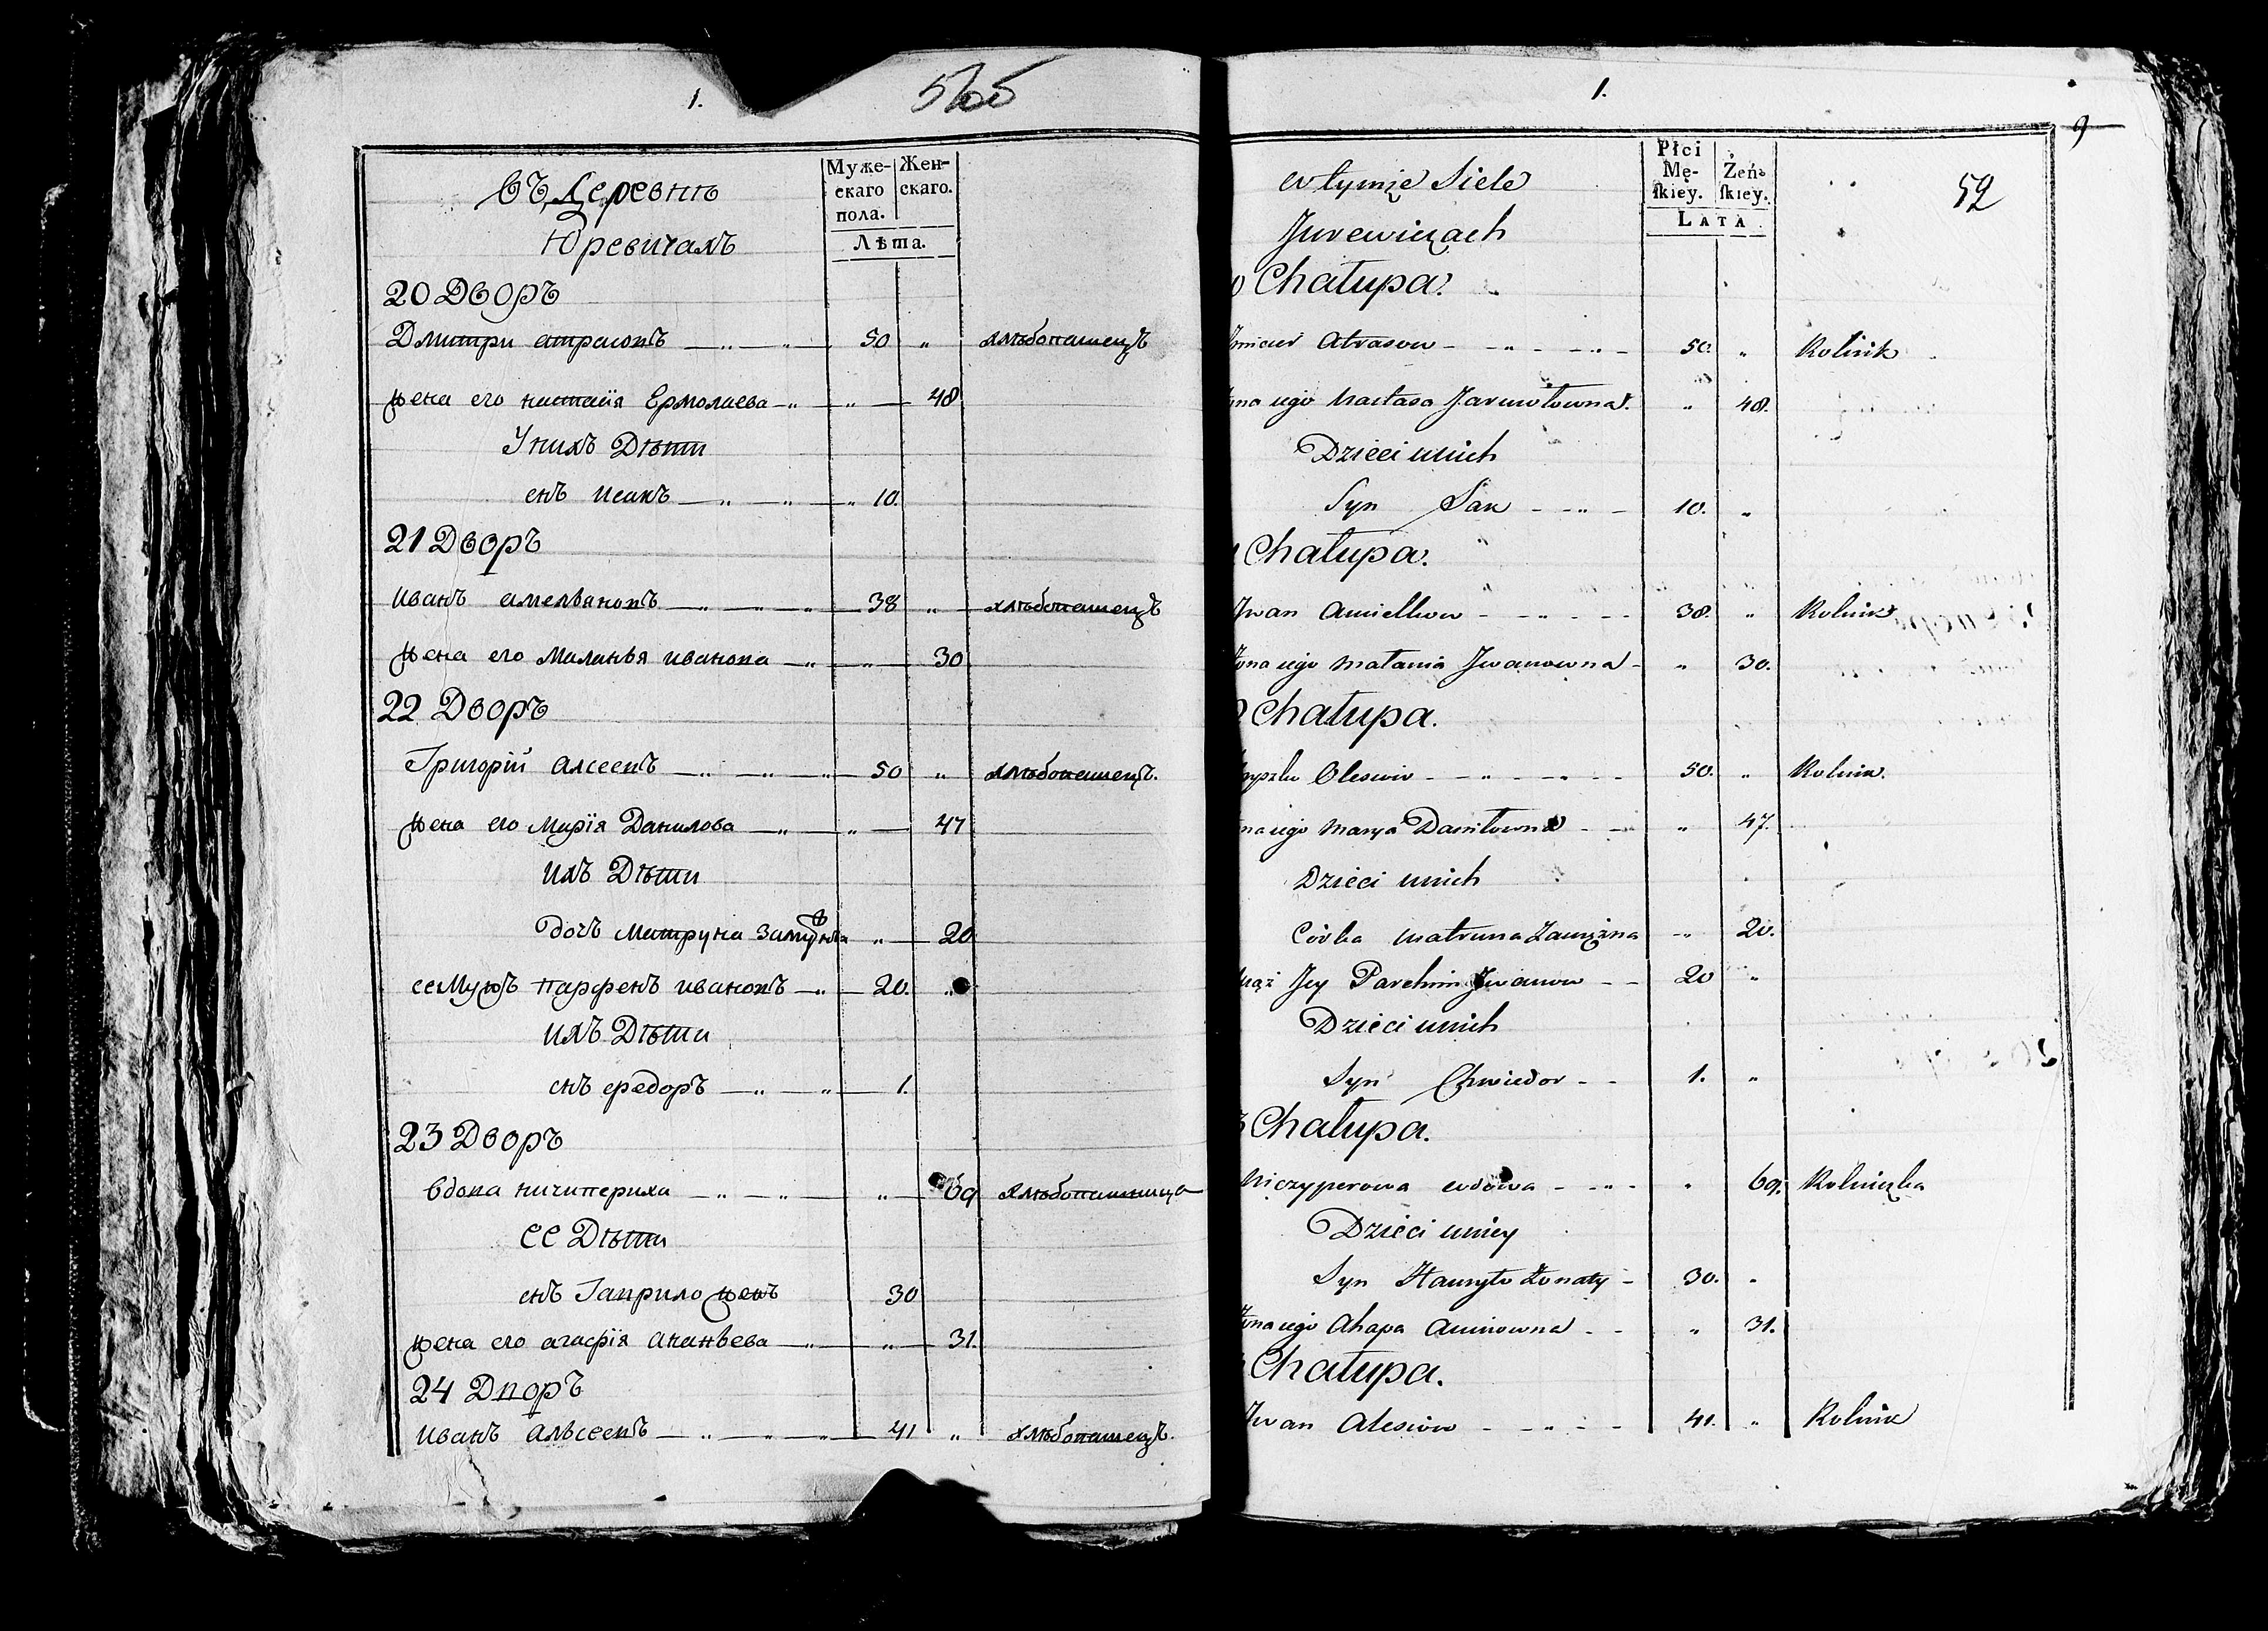 1.
въ Деревнѣ
Юревичахъ
Муже-
скаго
пола.
Жен-
скаго.
Лѣта.
20 Дворъ
Дмитри атрасовъ 50 " хлѣбопашецъ
жена его настасія Ермолаева " 48
У нихъ Дѣти
снъ исакъ 10.
21 Дворъ
иванъ амельяновъ 38 " хлѣбопашецъ
жена его Маланья иванова " 30
22 Дворъ
Григорій алсеевъ 50 " хлѣбопашецъ.
жена его Марія Данилова " 47
ихъ Дѣти
дочь Матруна " 20
ее Мужъ парфенъ ивановъ 20. "
ихъ Дѣти
снъ федоръ 1.
23 Дворъ
вдова ничипериха " 69 хлѣбопашница
ее Дѣти
снъ Гаврило жен 30
жена его агафія ананьева " 31.
24 Дворъ
иванъ алѣсеевъ 41 " хлѣбопашецъ.
1.
9
52
w tymże Siele
Jurewiczach
Płci
Mę-
skiey.
Żeń-
skiey.
LATA
0 Chałupa.
Atrasow 50. " Rolnik
iego Nastasa Jarmołowna. " 48.
Dzieci unich
Syn Sak 10. "
Chałupa.
Jwan Amielkow 38. " Rolnik
Żona iego Małania Jwanowna " 30.
Chałupa.
Olesiow 50. " Rolnik.
iego Marya Daniłowna " 47.
Dzieci unich
Córka Matruna Zamężna " 20.
Mąż Jey Parchim Jwanow 20 "
Dzieci unich
Syn Chwiedor 1. "
3 Chałupa.
Niczyperowa wdowa " 69. Rolniczka
Dzieci uniey
Syn Hauryło Żonaty 30. "
Żona iego Ahapa " 31.
Chałupa.
Jwan Alesiow 41. " Rolnik